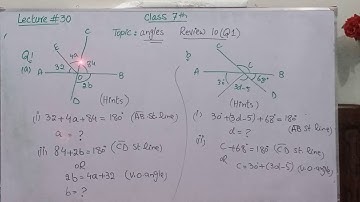 Lecture #30
Class 7th
Topic: angles Review 10 (Q1)
Q1
(a)
E
C
32
4a
84
A
O
B
2b
D
b
A
B
30
3d-5
68°
D
(Hints)
(i) 32+4a+84=180° (AB st.line)
a = ?
(ii) 84+2b=180° (CD st.line)
OR
2b=4a+32 (v.o.angle)
b = ?
(Hints)
(i) 30+(3d-5)+68=180°
d = ? (AB st.line)
(ii) c+68°=180° (CD st.line)
OR
c=30+(3d-5) (v.o.angle)